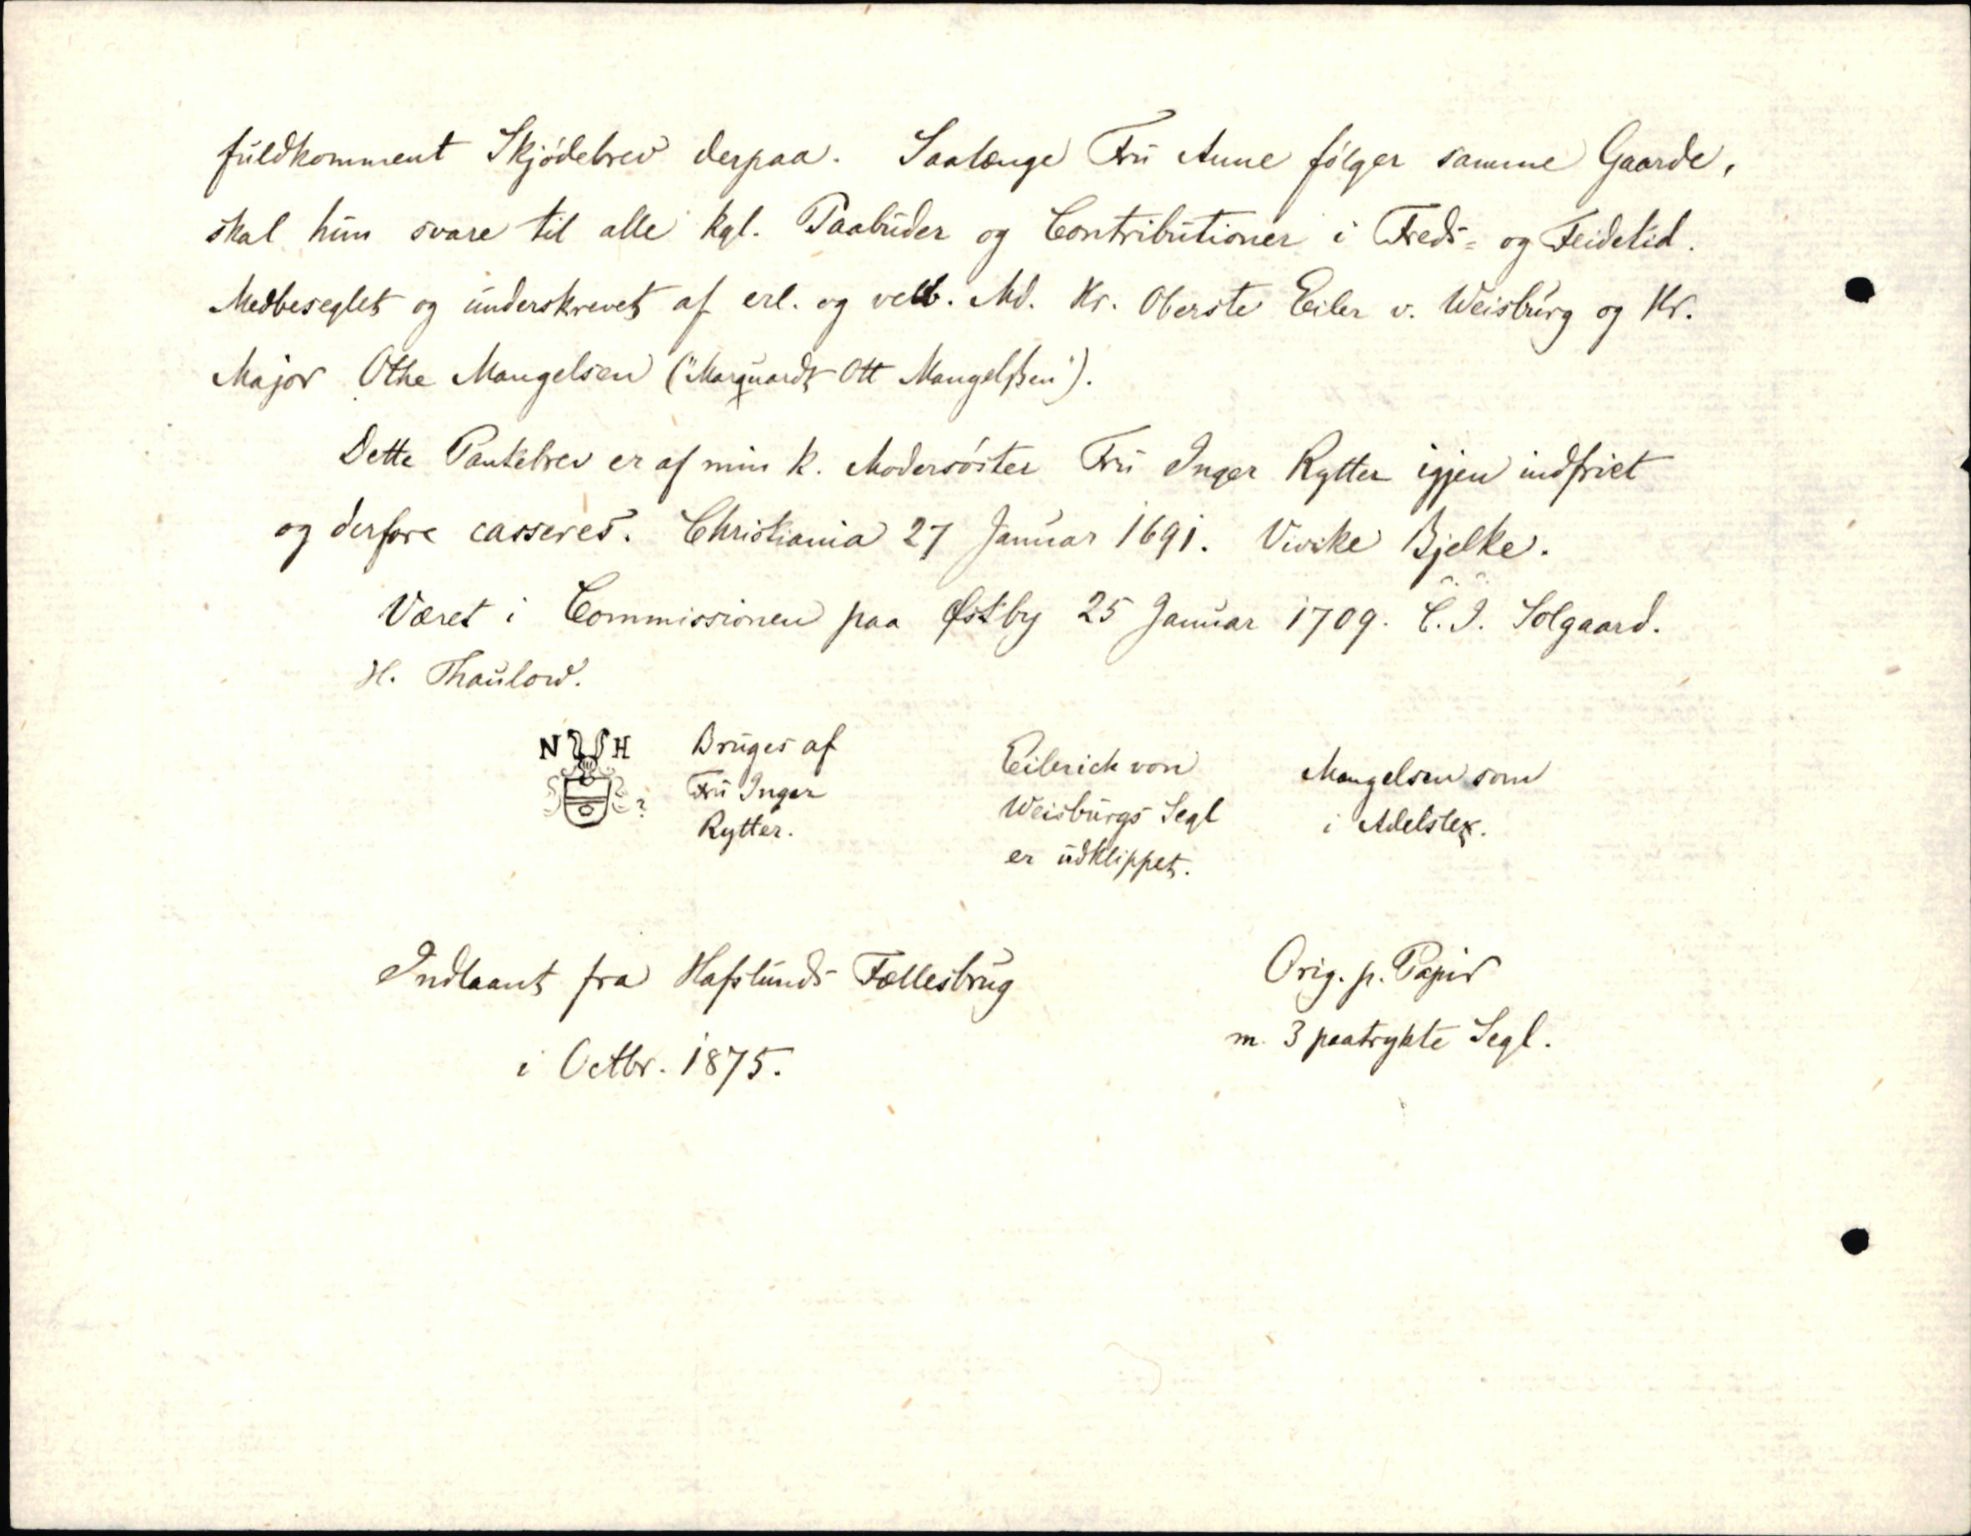 fuldkomment Skjødebrev derpaa. Saalænge Fru Anne følger samme Gaarde,
skal hun svare til alle kgl. Paabuder og Contributioner i Freds- og Feidetid.
Medbeseglet og underskrevet af erl. og velb. Md. Hr. Oberste Eiler v. Weisburg og Hr.
Major Othe Mangelsen ("Marquardt Ott Mangelßen").
Dette Pantebrev er af min k. Modersøster Fru Inger Rytter igjen indfriet
og derfore casseres. Christiania 27 Januar 1691. Vivike Bjelke.
Været i Commissionen paa Østby 25 Januar 1709. C. J. Solgaard.
H. Thaulow.
N H Bruges af
Fru Inger
Rytter.
?
Eilerich von
Weisburgs Segl
er udklippet.
Mangelsen som
i Adelslex.
Indlaant fra Hafslunds Fællesbrug
i Octbr. 1875.
Orig. p. Papir
m. 3 paatrykte Segl.